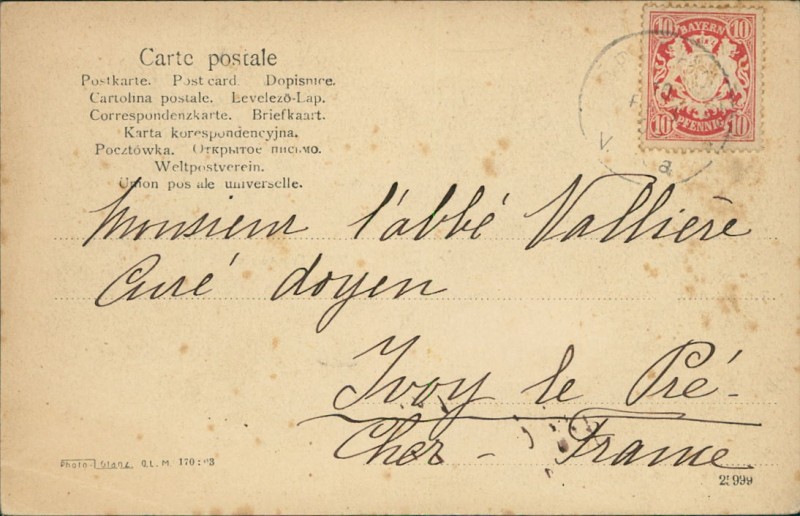 Carte postale
Postkarte. Post card. Dopisnice.
Cartolina postale. Levelezõ-Lap.
Correspondenzkarte. Briefkaart.
Karta korespondencyjna.
Pocztówka. Открытое письмо.
Weltpostverein.
Union postale universelle.
BAYERN
10 10
10 PFENNIG 10
V a
Monsieur l'abbé Vallière
Curé doyen
Ivoy le Pré-
Cher - France
Photo-Glanz G.L.M. 170: